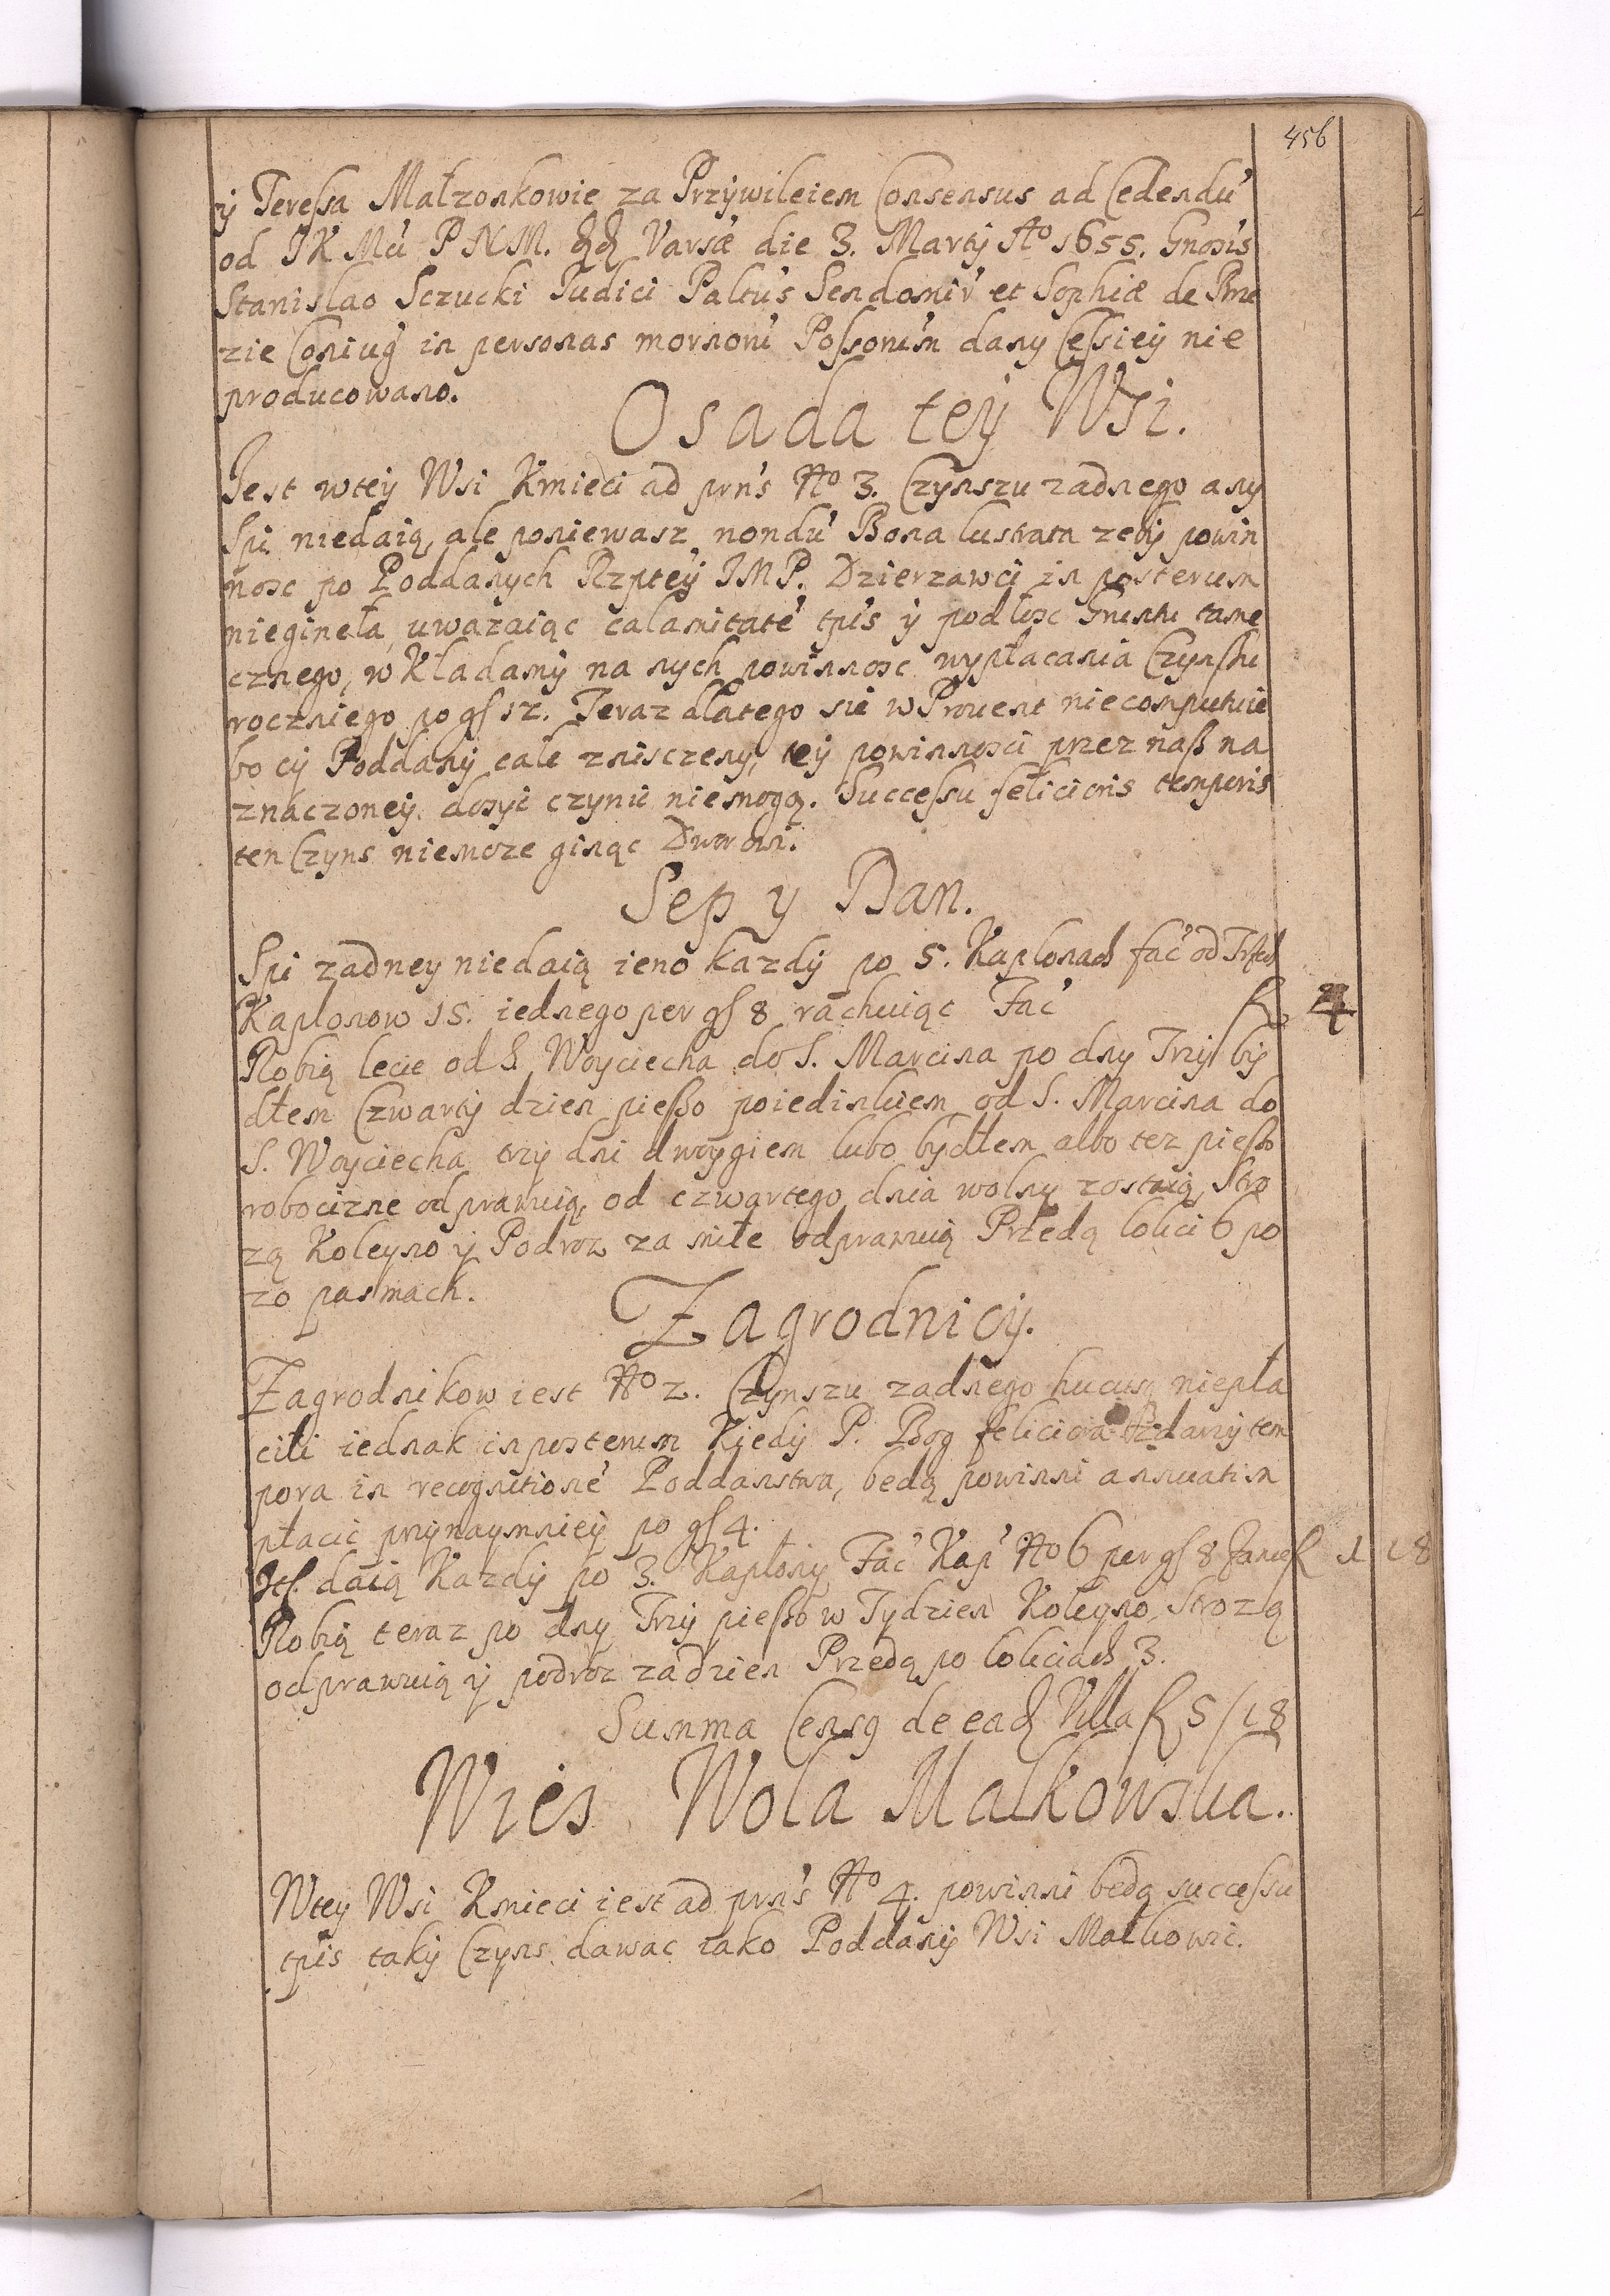 456
ÿ Teressa Małzonkowie za Przÿwileiem Consensus ad Cedendu'
od JK Mći PNM. Varsæ die 3. Martÿ Ao 1655. Gnosis
Stanislao Sczucki Judici Paltus Sendomir' et Sophiæ de
zie Coniug' in personas mornorū Possorum dany Cessieÿ nie
producowano.
Osada teÿ Wsi.
Jest wteÿ Wsi Kmieci ad prn's No 3. Czynszu zadnego any
Spi niedaią, ale poniewasz nondu' Bona lustratn zebÿ powin
nosc po Poddanych Rzpteÿ JMP. Dzierzawci in posterum
niegineła, uwazaiąc calamitate' tpi's ÿ podłosc Gruntu tame
cznego, wkładamÿ na nych powinnosc wypłacania Czynszu
roczniego po gſ 12. Teraz dlatego sie w Prouent niecomputuie
bo cÿ Poddanÿ cale znisczeny, teÿ powinnosci przez naß na
znaczoneÿ dosyć czynić niemogą. Successu felicioris temporis
ten Czyns niemoze ginąc Dworowi.
Sep y Dan.
Spi zadney niedaią ieno kazdÿ po 5. Kapłonach fac' od Trzech
Kapłonow 15. iednego per gſ 8 rachuiąc Fac' fl 4
Robią lecie od S. Woyciecha do S. Marcina po dny Trzÿ bÿ
dłem Czwartÿ dzien pießo poiedinkiem od S. Marcina do
S. Woyciecha trzÿ dni dwoygiem lubo bydłem albo tez pießo
robocizne odprawuią, od czwartego dnia wolny zostaią, Stro
zą Koleyno ÿ Podroz za mile odprawuią Przedą łokci 6 po
20 pasmach.
Zagrodnicÿ.
Zagrodnikow iest No 2. Czynszu zadnego hucusq niepła
cili iednak in posterum Kiedÿ P. Bog feliciora zdarzÿ tem
pora in recognitione' Poddanstwa, bedą powinni annuatim
płacic przÿnaymnieÿ po gſ 4.
Itſ. daią Kazdÿ po 3. Kapłony, Fac' Kap' No 6 per gſ 8 facit fl 1 18
Robią teraz po dny Trzÿ pießo w Tydzien Koleyno, Strozą
odprawuią ÿ podroz za dzien Przedą po łokciach 3.
Summa Censq de eadq Villa fl 5/18
Wies Wola Malkowska.
Wtey Wsi Kmieci iest ad prn's No 4. powinni bedą successu
tpi's takÿ Czyns dawac iako Poddanÿ Wsi Małkowic.